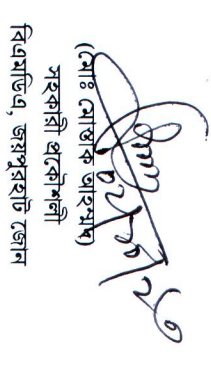 (মোঃ মোস্তাক আহম্মদ)
সহকারী প্রকৌশলী
বিএমডিএ, জয়পুরহাট জোন